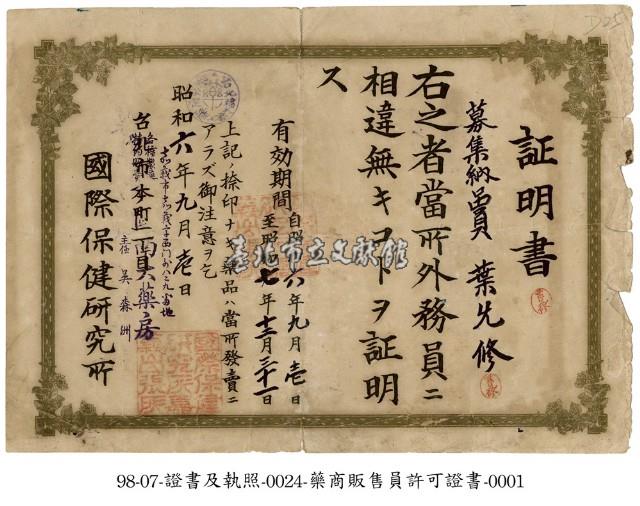 証明書
募集納品員 葉先修
右之者當所外務員ニ
相違無キコトヲ証明
ス
有効期間 自昭和六年九月壱日
至昭和七年十二月三十一日
上記ノ捺印ナキ藥品ハ當所發賣ニ
アラズ御注意ヲ乞
昭和六年九月壱日
嘉義市嘉義字西門外八三九番地
台北市本町 藥房
主任 吳森洲
國際保健研究所
臺北市立文獻館
D25
98-07-證書及執照-0024-藥商販售員許可證書-0001